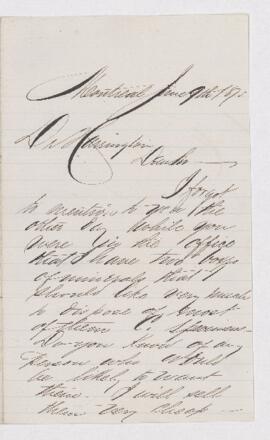 Montreal June 9th 187
Dr Harrington
Dear Sir
I forgot
to mention to you the
other day while you
were in the office
that I have two boxes
of minerals that I
should like very much
to dispose of most
of them C. specimens
Do you know of any
person who would
be likely to want
them. I will sell
them very cheap